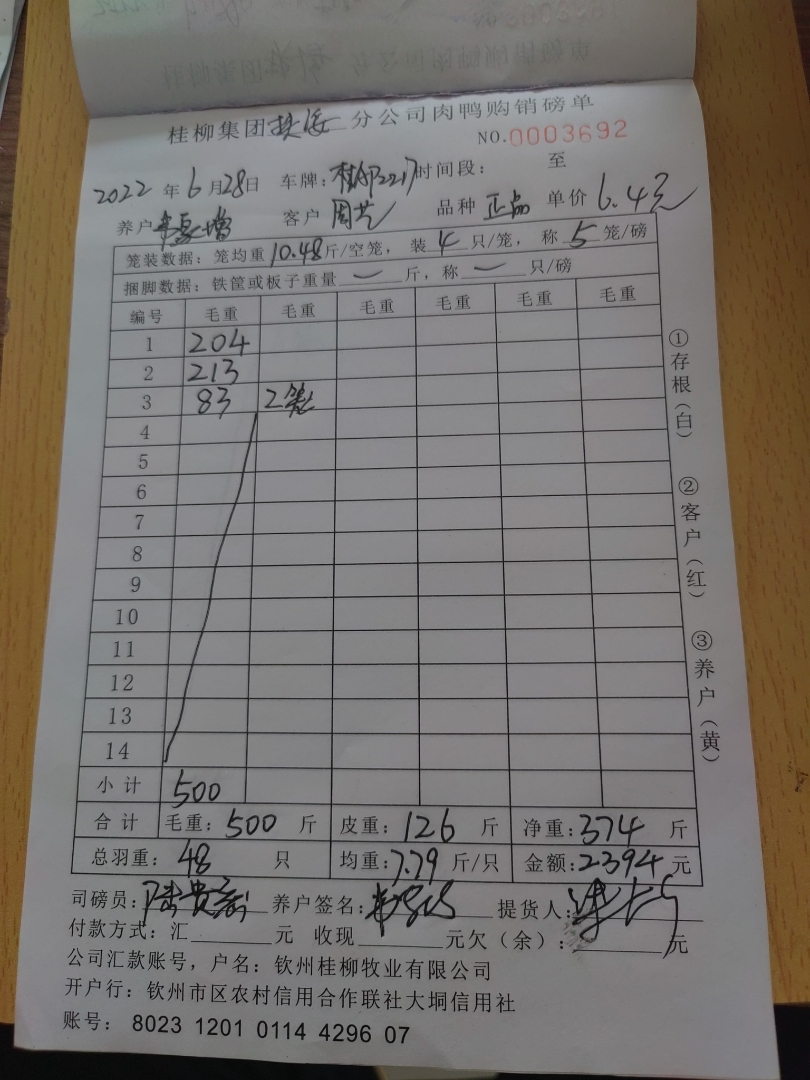 桂柳集团扶绥分公司肉鸭购销磅单
NO.0003692
2022年6月28日 车牌: 2217 时间段: 至
养户 客户 周艺 品种 正品 单价 6.4元
笼装数据: 笼均重10.48斤/空笼, 装4只/笼, 称5笼/磅
捆脚数据: 铁筐或板子重量一斤, 称一只/磅
编号 毛重 毛重 毛重 毛重 毛重 毛重
1 204
2 213
3 83 2笼
4
5
6
7
8
9
10
11
12
13
14
小计 500
合计 毛重: 500 斤 皮重: 126 斤 净重: 374 斤
总羽重: 48 只 均重: 7.79 斤/只 金额: 2394 元
司磅员: 养户签名: 提货人:
付款方式: 汇 元 收现 元欠(余): 元
公司汇款账号, 户名: 钦州桂柳牧业有限公司
开户行: 钦州市区农村信用合作联社大垌信用社
账号: 8023 1201 0114 4296 07
①存根(白)
②客户(红)
③养户(黄)